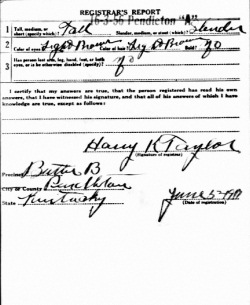 REGISTRAR'S REPORT
16-3-56 Pendleton "A"
1 Tall, medium, or short (specify which)? Tall Slender, medium, or stout (which)? Slender
2 Color of eyes? Light Brown Color of hair? Light Brown Bald? No
3 Has person lost arm, leg, hand, foot, or both eyes, or is he otherwise disabled (specify)? No
I certify that my answers are true, that the person registered has read his own
answers, that I have witnessed his signature, and that all of his answers of which I have
knowledge are true, except as follows:
Harry K Taylor
(Signature of registrar)
Precinct Butler B
City or County Pendleton
State Kentucky
June 5-1917
(Date of registration)